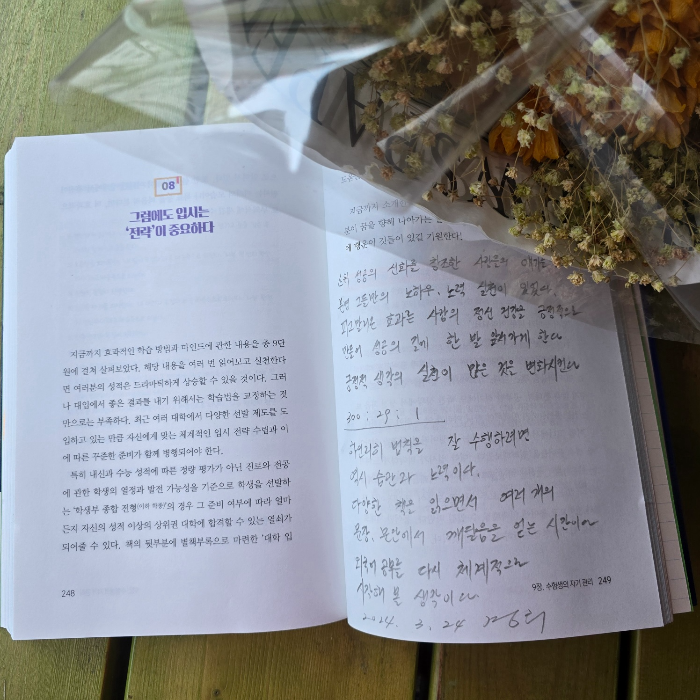 08
그럼에도 입시는
'전략'이 중요하다
지금까지 효과적인 학습 방법과 마인드에 관한 내용을 총 9단
원에 걸쳐 살펴보았다. 해당 내용을 여러 번 읽어보고 실천한다
면 여러분의 성적은 드라마틱하게 상승할 수 있을 것이다. 그러
나 대입에서 좋은 결과를 내기 위해서는 학습법을 교정하는 것
만으로는 부족하다. 최근 여러 대학에서 다양한 선발 제도를 도
입하고 있는 만큼 자신에게 맞는 체계적인 입시 전략 수립과 이
에 따른 꾸준한 준비가 함께 병행되어야 한다.
특히 내신과 수능 성적에 따른 정량 평가가 아닌 진로와 전공
에 관한 학생의 열정과 발전 가능성을 기준으로 학생을 선발하
는 '학생부 종합 전형(이하 학종)'의 경우 그 준비 여부에 따라 얼마
든지 자신의 성적 이상의 상위권 대학에 합격할 수 있는 열쇠가
되어줄 수 있다. 책의 뒷부분에 별책부록으로 마련한 '대학 입
248
지금까지 소개한
분이 꿈을 향해 나아가는
에 행운이 깃들어 있길 기원한다.
성공의 신화를 창조한 사람들의
그들만의 노하우, 노력 실천이 있었다
효과는 사람의 정신 건강을
성공의 길에 한 발 앞서가게 한다
긍정적 생각의 실천이 많은 것을 변화시킨다
300 : 29 : 1
하인리히 법칙을 잘 수행하려면
역시 습관과 노력이다.
다양한 책을 읽으면서 여러 개의
문장, 문단에서 깨달음을 얻는 시간이다
외국어 공부를 다시 체계적으로
시작해 볼 생각이다.
9장. 수험생의 자기 관리 249
2024. 3. 24